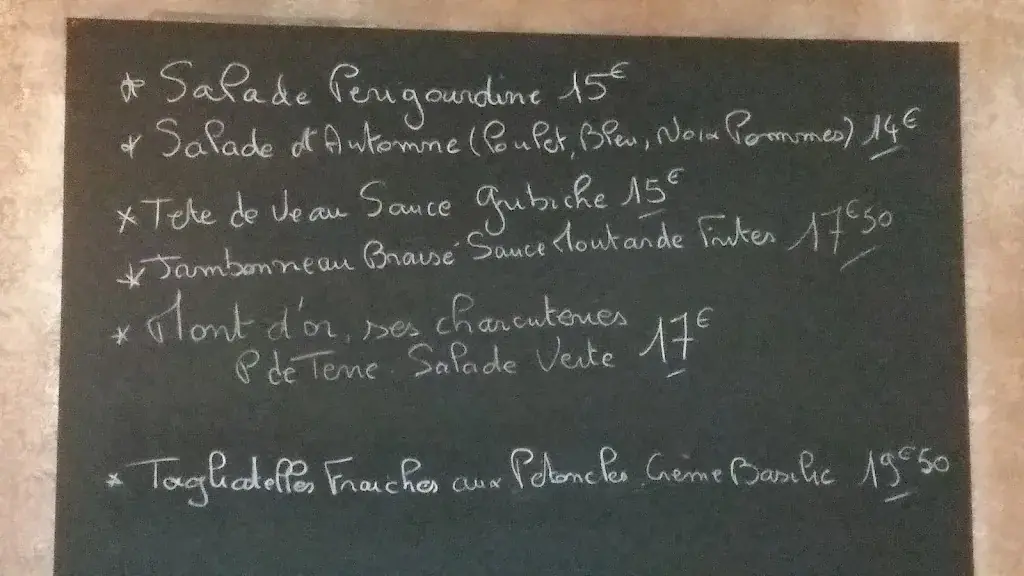 * Salade Perigourdine 15€
* Salade d'Automne (Poulet, Bleu, Noix Pommes) 14€
* Tete de Veau Sauce gribiche 15€
* Jambonneau Braisé Sauce Moutarde Frites 17€50
* Mont d'or, ses charcuteries
P de Terre. Salade Verte 17€
* Tagliatelles Fraiches aux Petoncles Crème Basilic 19€50